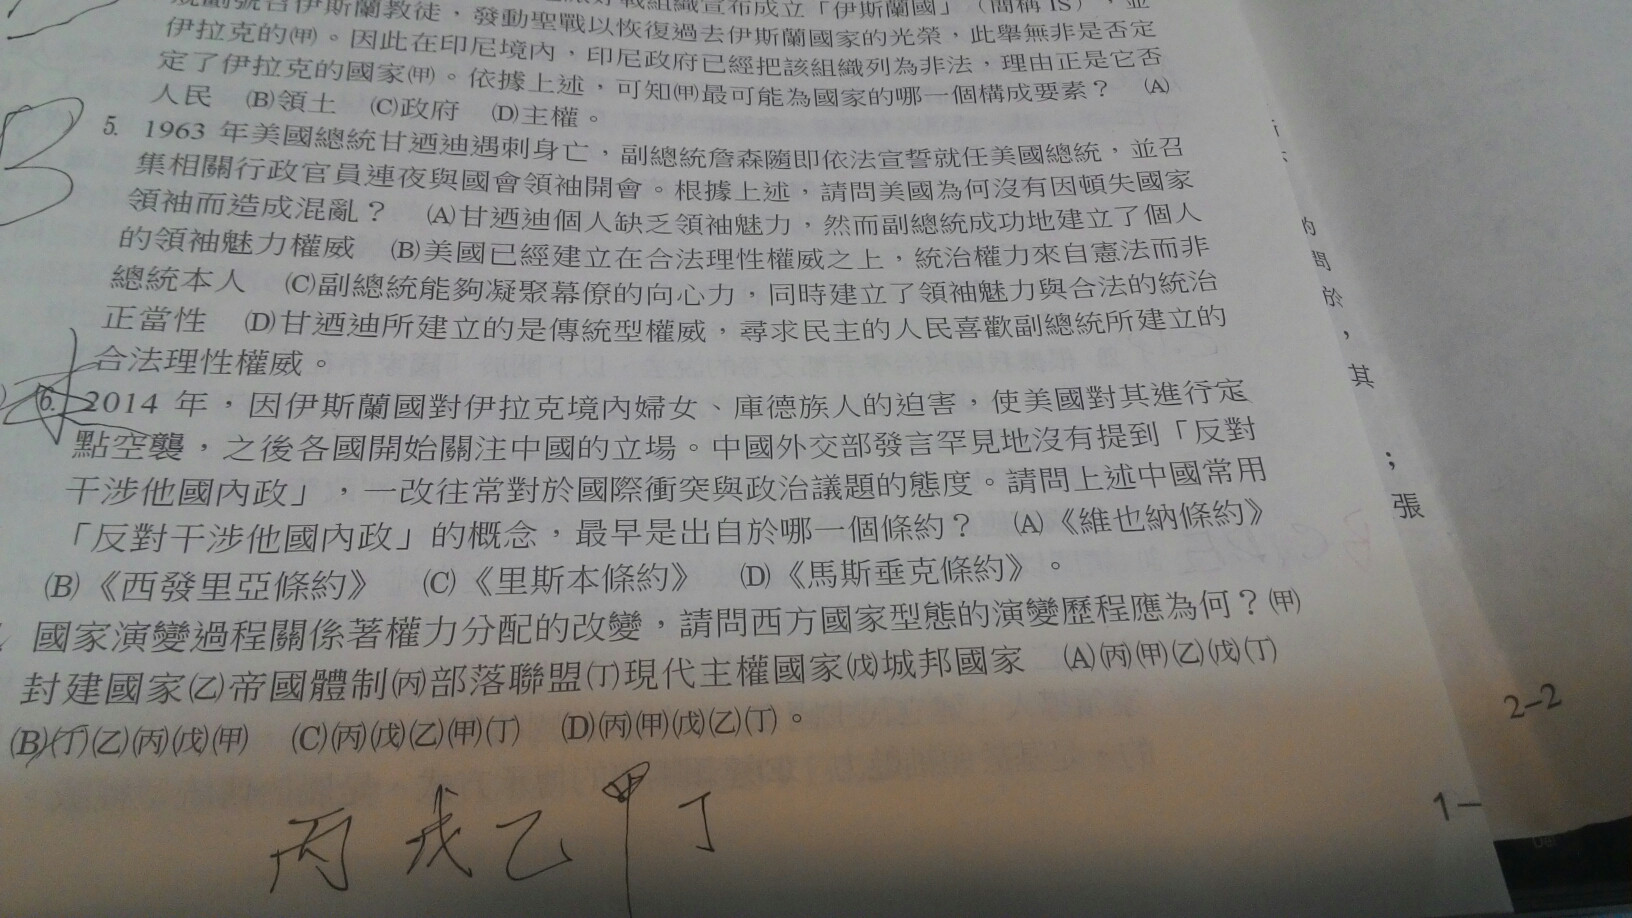 織宣布成立「伊斯蘭國」（簡稱 IS），並
號召伊斯蘭教徒，發動聖戰以恢復過去伊斯蘭國家的光榮，此舉無非是否定
伊拉克的㈙。因此在印尼境內，印尼政府已經把該組織列為非法，理由正是它否
定了伊拉克的國家㈙。依據上述，可知㈙最可能為國家的哪一個構成要素？ (A)
人民 (B)領土 (C)政府 (D)主權。
B
5. 1963 年美國總統甘迺迪遇刺身亡，副總統詹森隨即依法宣誓就任美國總統，並召
集相關行政官員連夜與國會領袖開會。根據上述，請問美國為何沒有因頓失國家
領袖而造成混亂？ (A)甘迺迪個人缺乏領袖魅力，然而副總統成功地建立了個人
的領袖魅力權威 (B)美國已經建立在合法理性權威之上，統治權力來自憲法而非
總統本人 (C)副總統能夠凝聚幕僚的向心力，同時建立了領袖魅力與合法的統治
正當性 (D)甘迺迪所建立的是傳統型權威，尋求民主的人民喜歡副總統所建立的
合法理性權威。
6. 2014 年，因伊斯蘭國對伊拉克境內婦女、庫德族人的迫害，使美國對其進行定
點空襲，之後各國開始關注中國的立場。中國外交部發言罕見地沒有提到「反對
干涉他國內政」，一改往常對於國際衝突與政治議題的態度。請問上述中國常用
「反對干涉他國內政」的概念，最早是出自於哪一個條約？ (A)《維也納條約》
(B)《西發里亞條約》 (C)《里斯本條約》 (D)《馬斯垂克條約》。
國家演變過程關係著權力分配的改變，請問西方國家型態的演變歷程應為何？(甲)
封建國家(乙)帝國體制(丙)部落聯盟(丁)現代主權國家(戊)城邦國家 (A)(丙)(甲)(乙)(戊)(丁)
(B)(丁)(乙)(丙)(戊)(甲) (C)(丙)(戊)(乙)(甲)(丁) (D)(丙)(甲)(戊)(乙)(丁)。
丙 戊 乙 甲 丁
的
問
於
，
其
；
張
2-2
1-